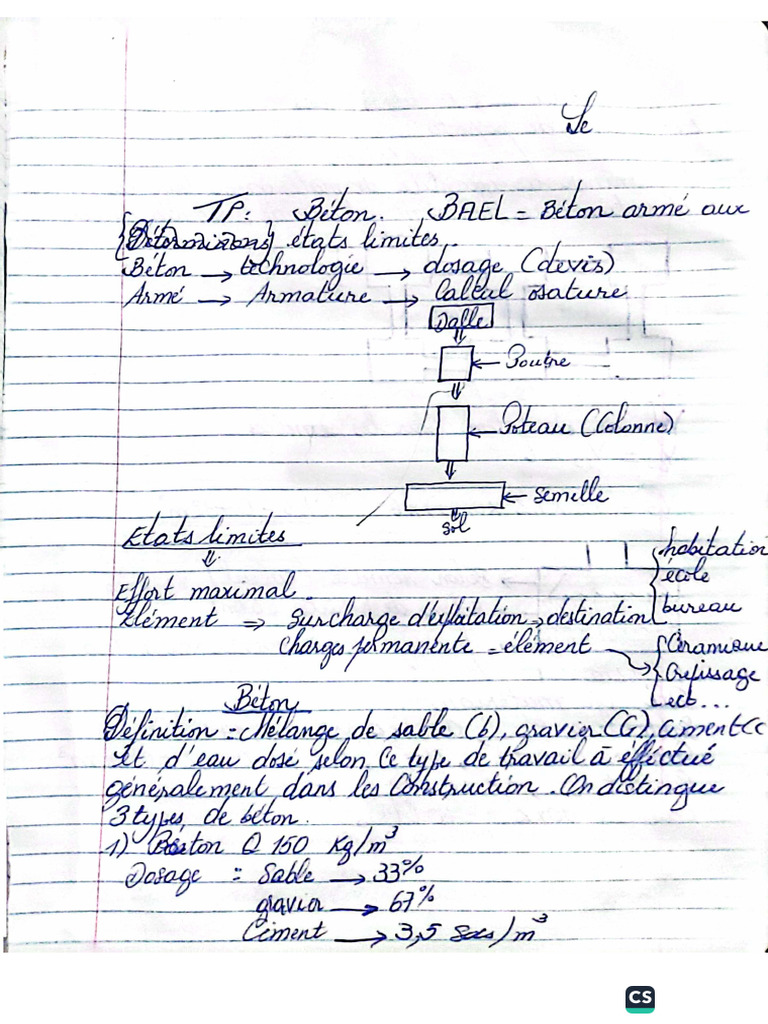 Le
TP: Béton. BAEL = Béton armé aux
états limites..
Béton → technologie → dosage (devis)
Armé → Armature → Calcul osature
Dalle
Poutre
Poteau (Colonne)
Semelle
sol
Etats limites
Effort maximal.
Elément ⇒ Surcharge d'éxploitation → destination { habitation
école
bureau
charges permanente = élément → { Céramique
Crépissage
ect...
Béton
Définition = Mélange de sable (b), gravier (G), ciment (c
et d'eau dosé selon le type de travail à éfféctué
généralement dans les Construction. On distingue
3 types de béton.
1) Béton Q 150 Kg/m³
Dosage = Sable → 33%
gravier → 67%
Ciment → 3,5 Sacs/m³
CS